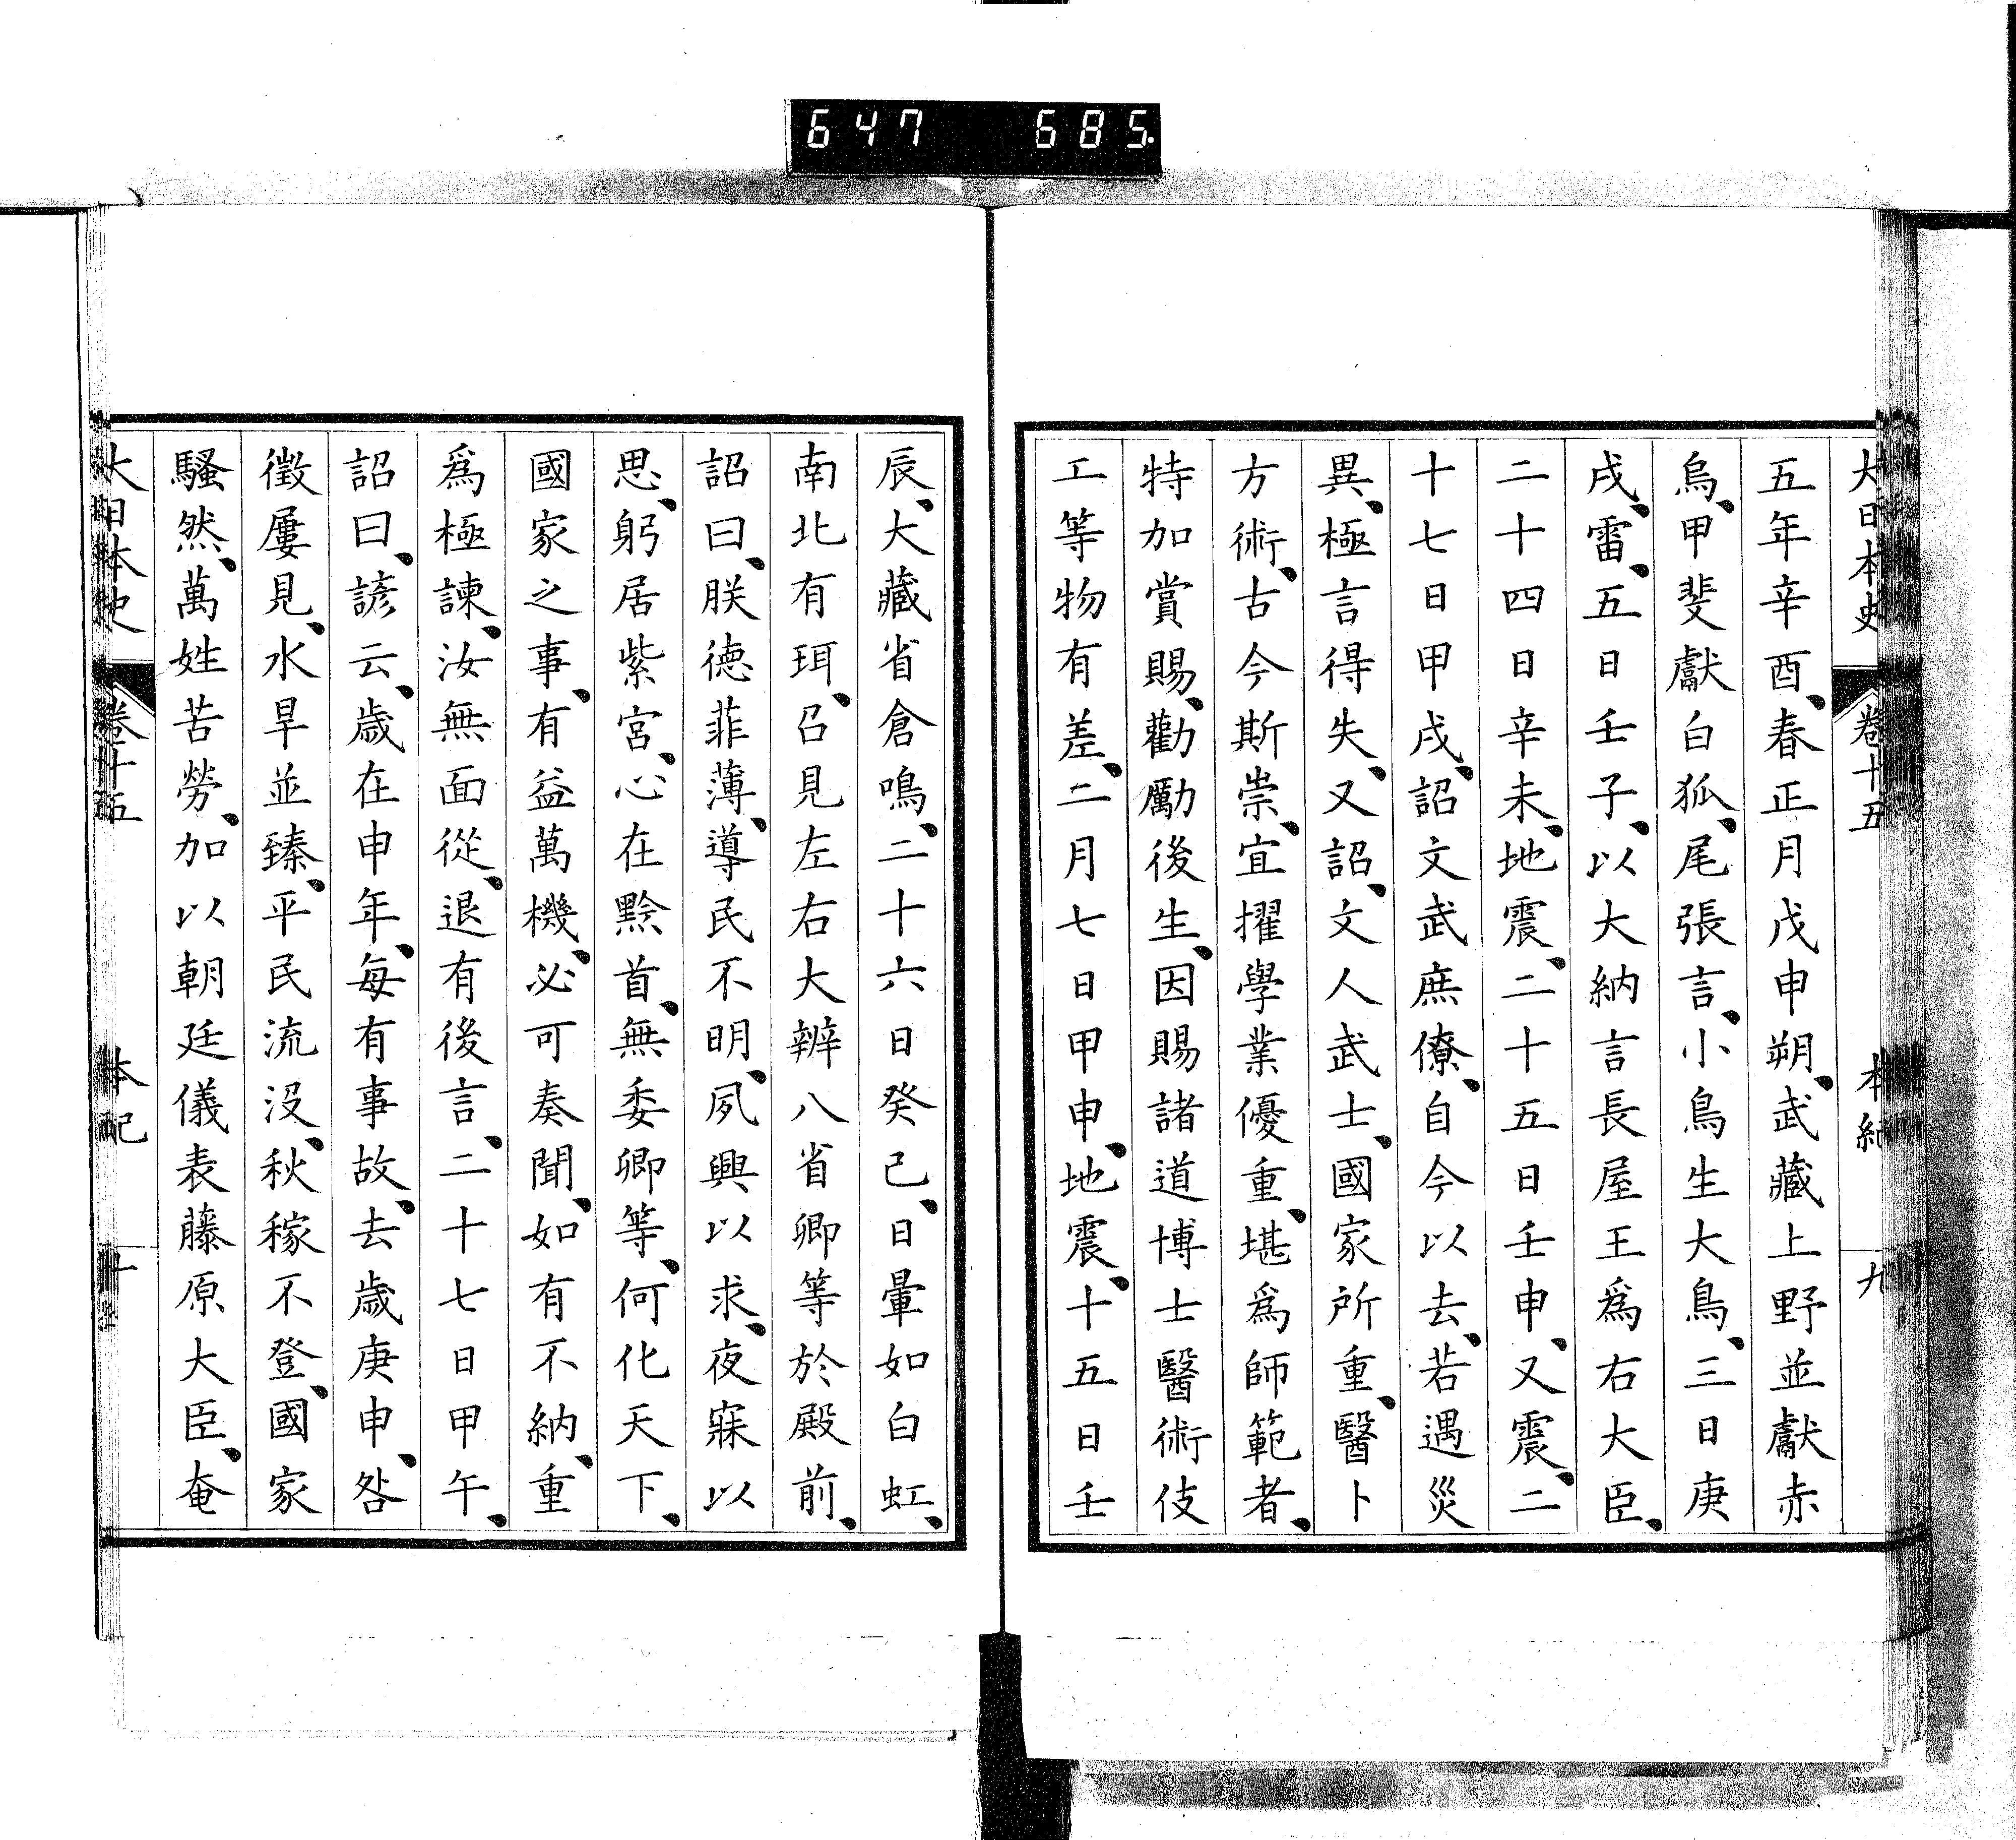 647 685.
大日本史 卷十五 本紀 九
五年辛酉、春正月戊申朔、武藏上野並獻赤
烏、甲斐獻白狐、尾張言、小鳥生大鳥、三日庚
戌、雷、五日壬子、以大納言長屋王爲右大臣、
二十四日辛未、地震、二十五日壬申、又震、二
十七日甲戌、詔文武庶僚、自今以去、若遇災
異、極言得失、又詔、文人武士、國家所重、醫卜
方術、古今斯崇、宜擢學業優重、堪爲師範者、
特加賞賜、勸勵後生、因賜諸道博士醫術伎
工等物有差、二月七日甲申、地震、十五日壬
辰、大藏省倉鳴、二十六日癸巳、日暈如白虹、
南北有珥、召見左右大辨八省卿等於殿前、
詔曰、朕德菲薄、導民不明、夙興以求、夜寐以
思、躬居紫宮、心在黔首、無委卿等、何化天下、
國家之事、有益萬機、必可奏聞、如有不納、重
爲極諫、汝無面從、退有後言、二十七日甲午、
詔曰、諺云、歲在申年、每有事故、去歲庚申、咎
徵屢見、水旱並臻、平民流沒、秋稼不登、國家
騷然、萬姓苦勞、加以朝廷儀表藤原大臣、奄
大日本史 卷十五 本紀 十